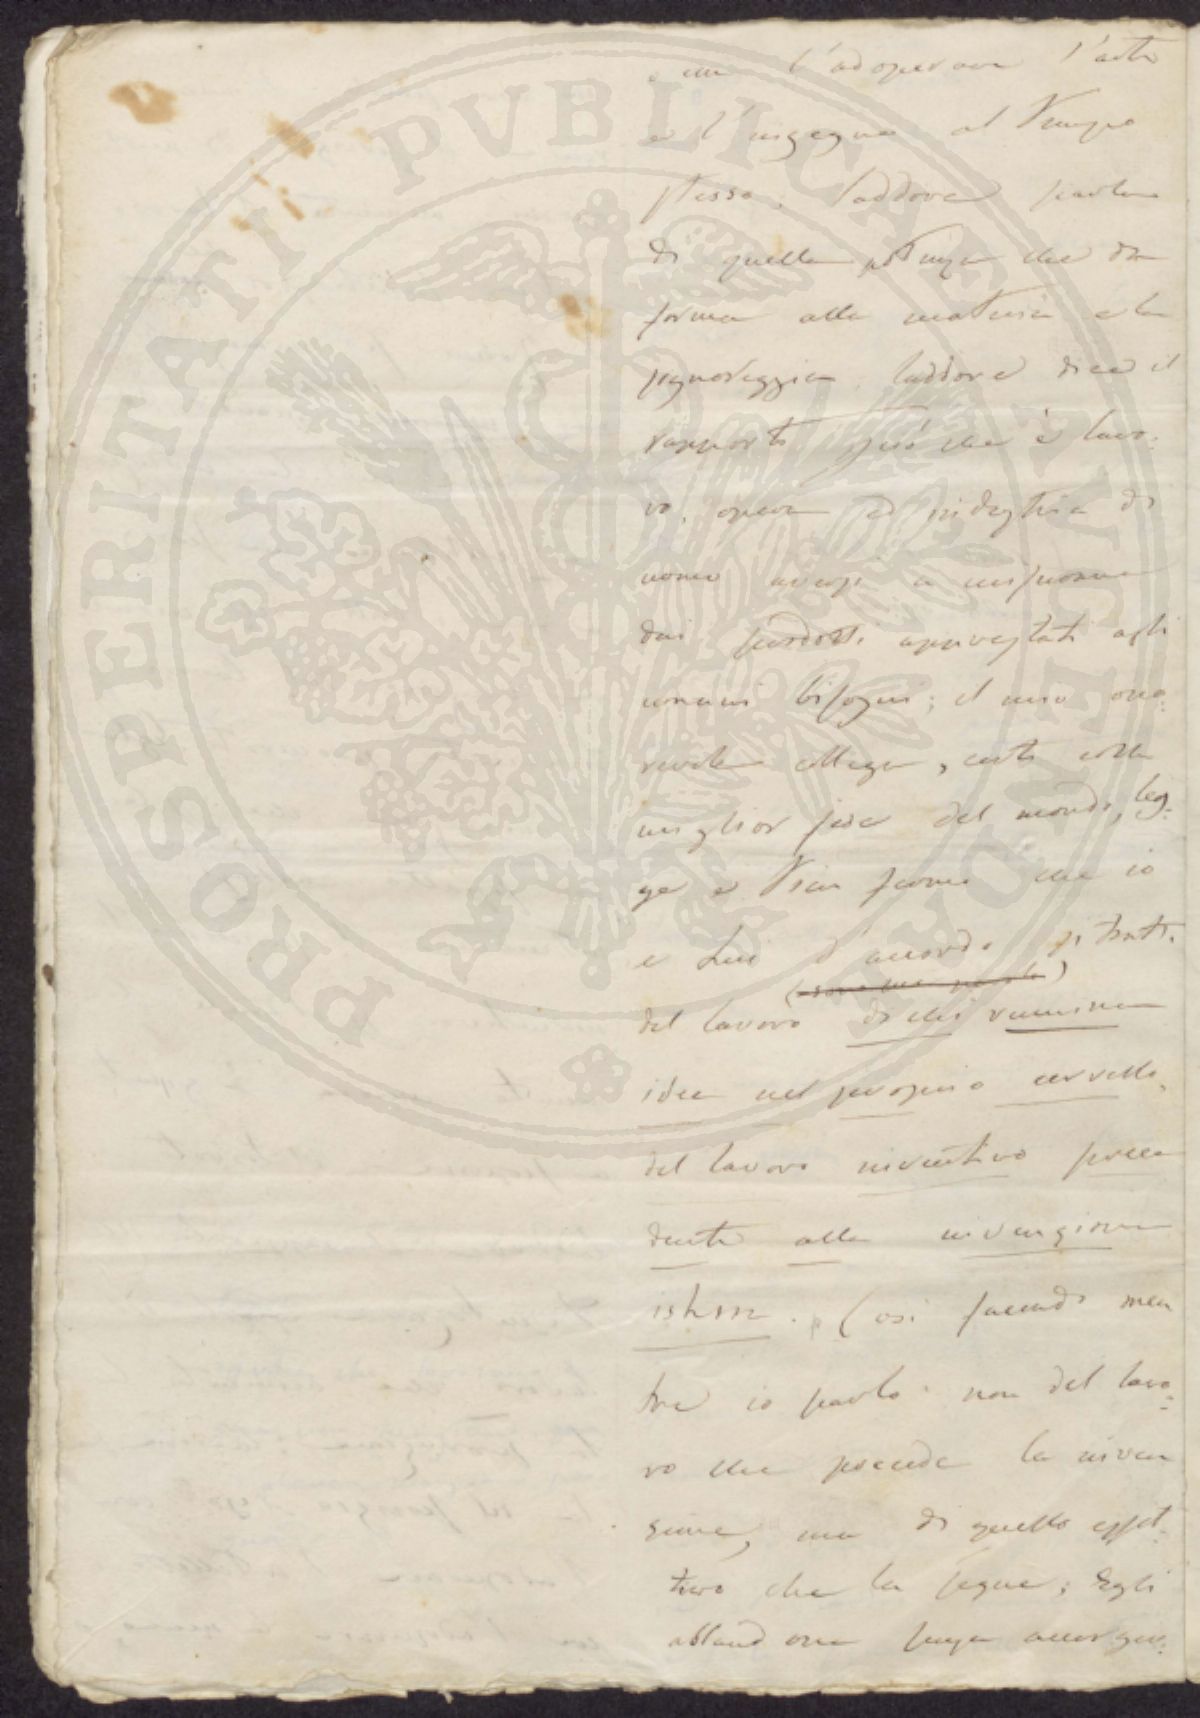 PROSPERITATI PVBLICAE AVGENDAE
. un l'adoperare l'arte
e l'ingegno al tempo
stesso; laddove parla
di quella potenza che dà
forma alla materia e la
signoreggia, laddove dice il
rapporto fra ciò che è lavo-
ro, opera ed industria di
uomo
dai prodotti apprestati agli
umani bisogni; il mio ono-
revole collega, certo colla
miglior fede del mondo, leg-
ge e tien fermo che io
e Lui d'accordo si tratti
del lavoro di chi rumina
idee nel proprio cervello,
del lavoro inventivo prece
dente alla invenzione
istessa. Così facendo men
tre io parlo non del lavo-
ro che precede la inven
zione, ma di quello effet-
tivo che la segue; Egli
abbandona senza accorger-